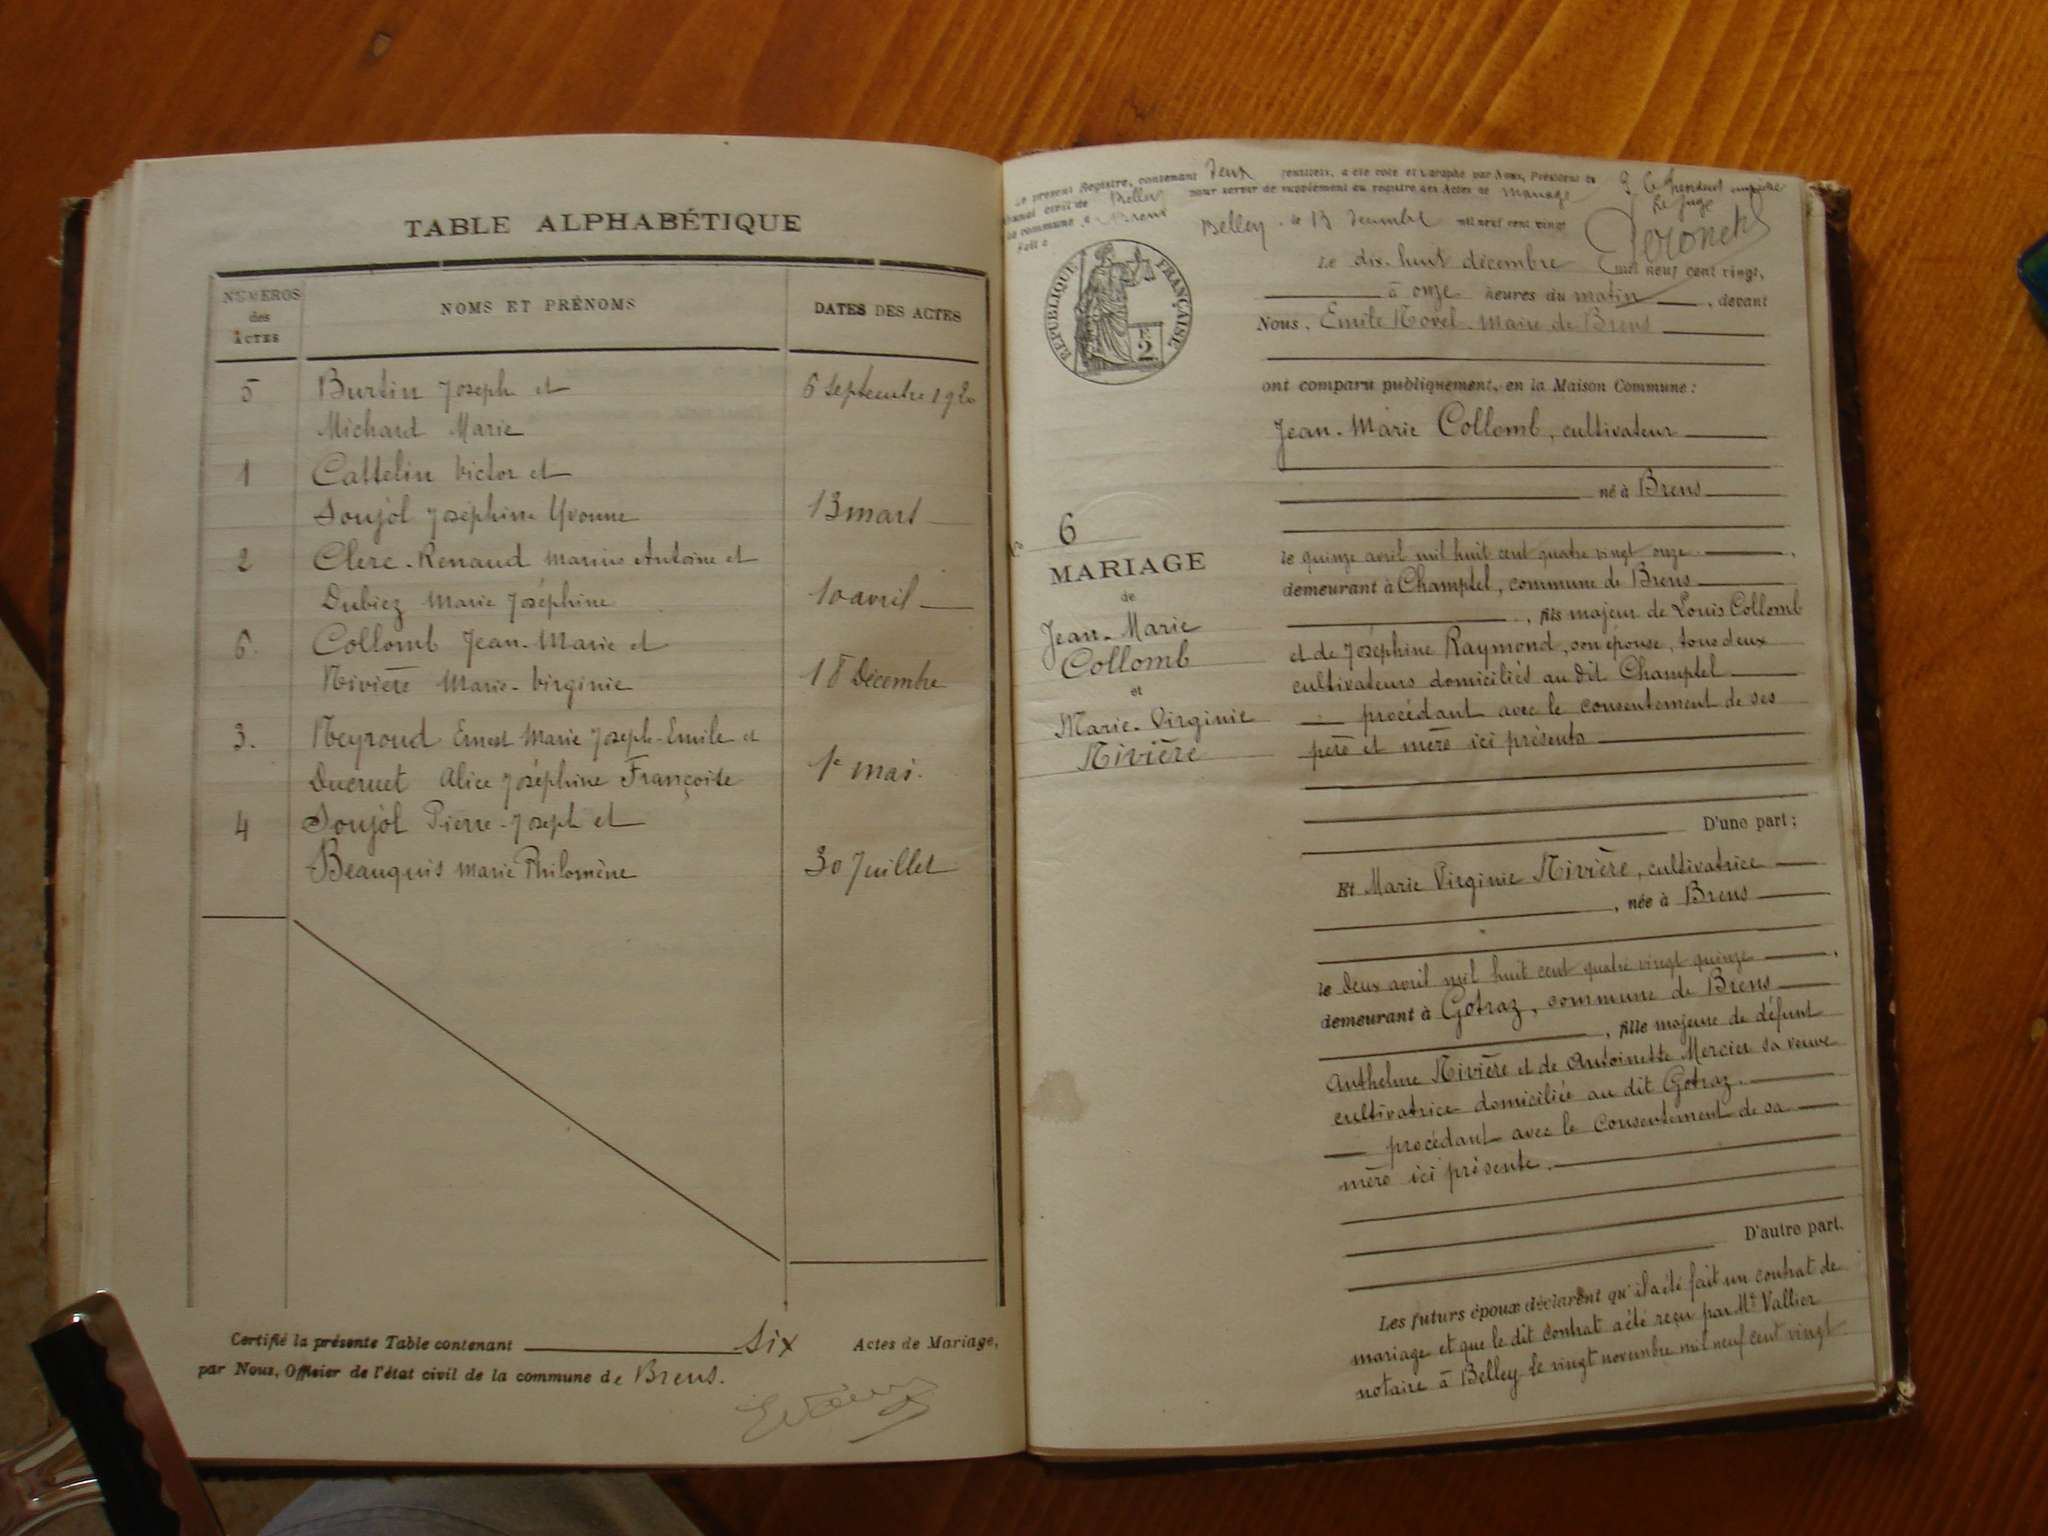 TABLE ALPHABÉTIQUE
NUMÉROS des ACTES
NOMS ET PRÉNOMS
DATES DES ACTES
5 Burtin Joseph et 6 Septembre 1920
Michard Marie
1 Cattelin Victor et
Soujol Joséphine Yvonne 13 mars
2 Clerc-Renaud Marius Antoine et
Dubiez Marie Joséphine 10 avril
6. Collomb Jean-Marie et
Rivière Marie-Virginie 18 Décembre
3. Reyroud Ernest Marie Joseph-Emile et
Ducruet Alice Joséphine Françoise 1e mai.
4 Soujol Pierre-Joseph et
Beauquis Marie Philomène 30 Juillet
Certifié la présente Table contenant six Actes de Mariage,
par Nous, Officier de l'état civil de la commune de Brens.
Le présent Registre, contenant deux feuillets, a été coté et paraphé par Nous, Président du
Tribunal civil de Belley pour servir de supplément au registre des Actes de mariage
la commune de Brens
Fait à Belley le 13 décembre mil neuf cent vingt
Le Juge
RÉPUBLIQUE FRANÇAISE
2
Le dix-huit décembre mil neuf cent vingt,
à onze heures du matin, devant
Nous, Emile Rovel Maire de Brens
ont comparu publiquement, en la Maison Commune :
Jean-Marie Collomb, cultivateur
né à Brens
le quinze avril mil huit cent quatre vingt onze,
demeurant à Champtel, commune de Brens
, fils majeur de Louis Collomb
et de Joséphine Raymond, son épouse, tous deux
cultivateurs domiciliés au dit Champtel
procédant avec le consentement de ses
père et mère ici présents
D'une part ;
6
MARIAGE
de
Jean-Marie
Collomb
et
Marie-Virginie
Rivière
Et Marie Virginie Rivière, cultivatrice
, née à Brens
le deux avril mil huit cent quatre vingt quinze,
demeurant à Gotraz, commune de Brens
, fille majeure de défunt
Anthelme Rivière et de Antoinette Mercier sa veuve
cultivatrice domiciliée au dit Gotraz.
procédant avec le consentement de sa
mère ici présente.
D'autre part.
Les futurs époux déclarent qu'il a été fait un contrat de
mariage et que le dit contrat a été reçu par Me Vallier
notaire à Belley le vingt novembre mil neuf cent vingt